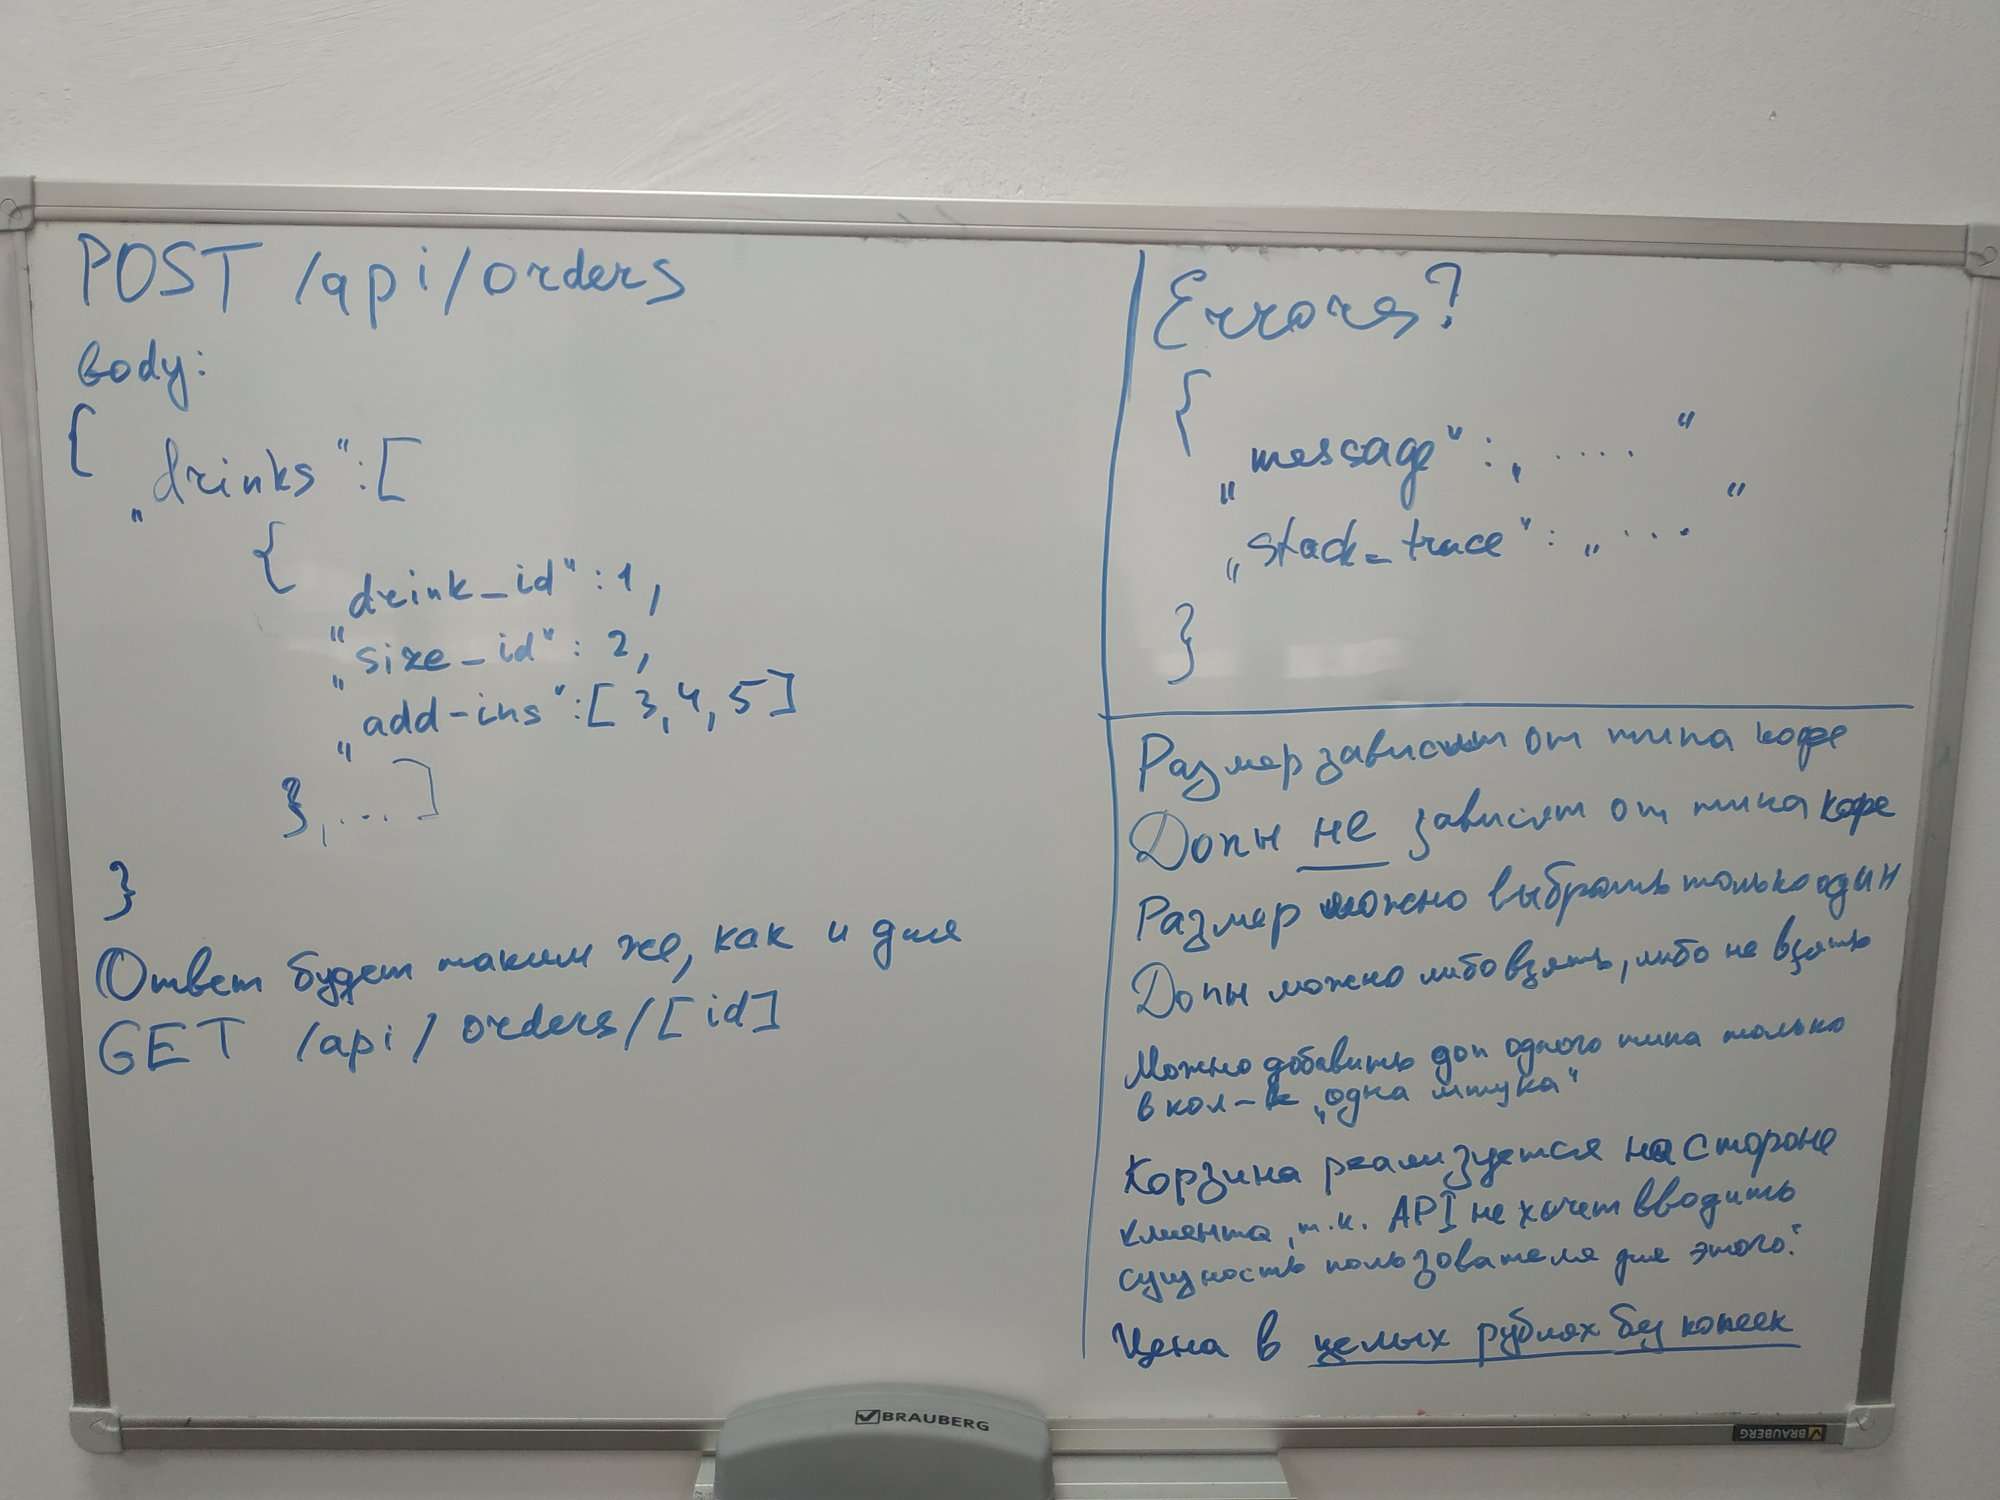 POST /api/orders
body:
{
„drinks“:[
{
„drink_id“:1,
„size_id“: 2,
„add-ins“:[3,4,5]
},...]
}
Ответ будет таким же, как и для
GET /api/orders/[id]
Errors?
{
„message“: „....“
„stack_trace“: „....“
}
Размер зависит от типа кофе
Допы не зависят от типа кофе
Размер можно выбрать только один
Допы можно либо взять, либо не взять
Можно добавить доп одного типа только
в кол-ве „одна штука“
Корзина реализуется на стороне
клиента, т.к. API не хочет вводить
сущность пользователя для этого.
Цена в целых рублях без копеек
BRAUBERG
BRAUBERG